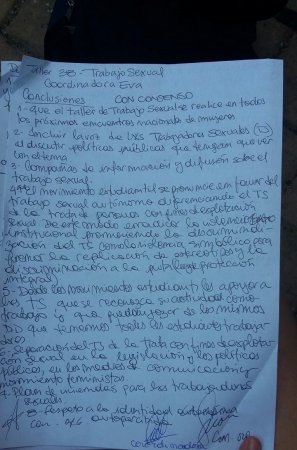 Taller 38 - Trabajo Sexual
Coordinadora Eva
Conclusiones CON CONSENSO
1- que el taller de Trabajo Sexual se realice en todos
los próximos encuentros nacionales de mujeres
2- Incluir la voz de lxs Trabajadora Sexuales (TS)
al discutir políticas públicas que tengan que ver
con el tema
3- Campañas de información y difusión sobre el
trabajo sexual.
4- El movimiento estudiantil se pronuncie en favor del
trabajo sexual autónomo diferenciando el TS
de la trata de personas con fines de explotación
sexual. De este modo erradicar la violencia
institucional promoviendo la descriminali-
zación del TS como violencia simbólica para
frenar la replicación de estereotipos y la
discriminación a la puta
integral
5- Desde los movimientos estudiantiles apoyar a
las TS que se reconozca su actividad como
trabajo y que puedan gozar de los mismos
DD que tenemos todxs lxs estudiantes trabajado-
res
6- Separación del TS de la trata con fines de explota-
ción sexual en la legislación y las políticas
públicas, en los medios de comunicación y
movimiento feministas
7- Plan de viviendas para las trabajadoras
sexuales.
8- Respeto a la identidad
con
coordinadora